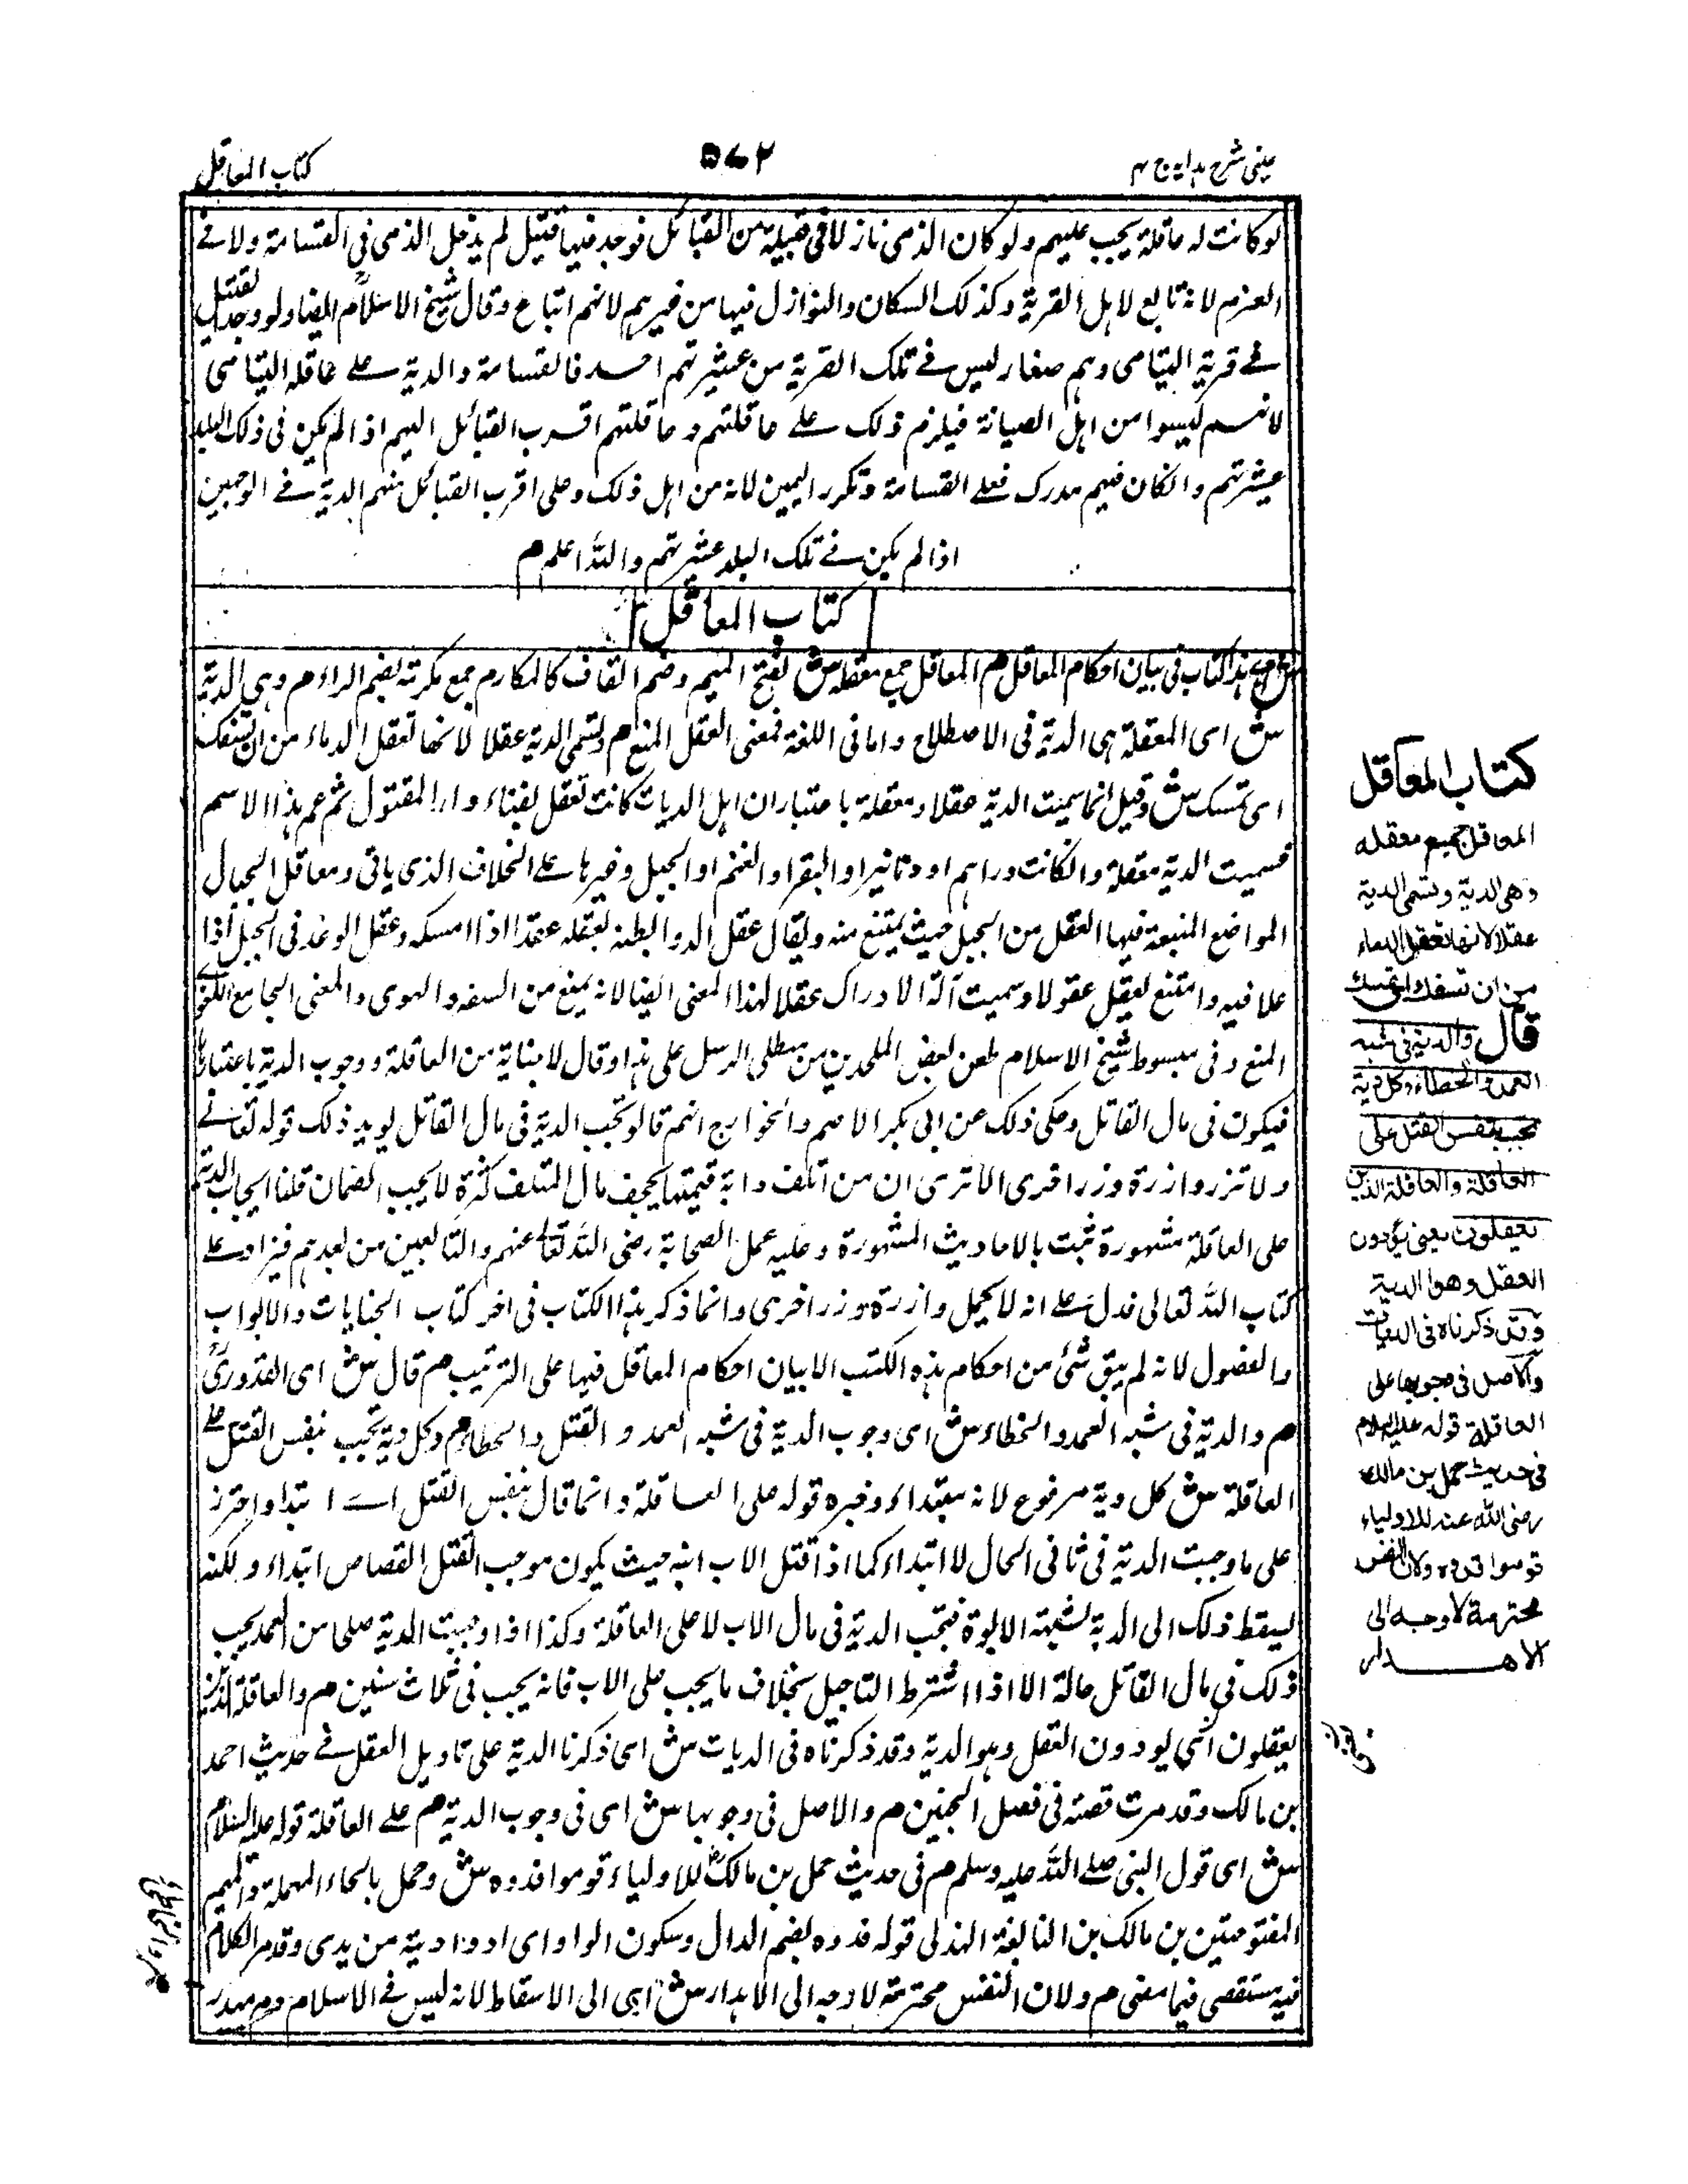 عینی شرح ہدایہ ج ۴
۵۷۲
کتاب المعاقل
لو كانت له عاقلة يجب عليهم ولو كان الذمى نازلا فى قبيلة من القبائل فوجد فيها قتيل لم يدخل الذمى فى القسامة ولا فے
الغرم لانه تابع لاہل القرية وكذلك السكان والنوازل فيها من غيرہم لانهم اتباع وقال شيخ الاسلام ايضا ولو وجد القتيل
فے قرية اليتامى وہم صغار ليس فے تلك القرية من عشيرتهم احد فالقسامة والدية علے عاقلة اليتامى
لانہم ليسوا من اہل الصيانة فيلزم ذلك علے عاقلتهم وعاقلتهم اقرب القبائل اليهم اذا لم يكن فى ذلك البلد
عشيرتهم وان كان فيهم مدرك فعليه القسامة وتكرر اليمين لانه من اہل ذلك وعلى اقرب القبائل منهم الدية فے الوجهين
اذا لم يكن فے تلك البلد عشيرتهم والله اعلم م
كتاب المعاقل
ش اى ہذا كتاب فى بيان احكام المعاقل م المعاقل جمع معقلة ش بفتح الميم وضم القاف كالمكارم جمع مكرمة بضم الراء م وہى الدية
ش اى المعقلة ہى الدية فى الاصطلاح واما فى اللغة فمعنى العقل المنع م وتسمى الدية عقلا لانها تعقل الدماء من ان تسفك
اى تمسك ش وقيل انما سميت الدية عقلا ومعقلة باعتبار ان اہل الديات كانت تعقل بفناء دار المقتول ثم عم ہذا الاسم
فسميت الدية معقلة وان كانت دراہم او دنانير او البقر او الغنم او الجبل وغيرہا علے الخلاف الذى ياتى ومعاقل الجبال
المواضع المنيعة فيها العقل من الجبل حيث يمتنع منه ويقال عقل الدواء البطنه يعقله عقدا اذا امسكه وعقل الوعد فى الجبل اذا
علا فيه وامتنع يعقل عقولا وسميت آلة الادراك عقلا لهذا المعنى ايضا لانه يمنع من السفه والهوى والمعنى الجامع اللغوى
المنع وفى مبسوط شيخ الاسلام طعن بعض الملحدين من مبطلى الرسل على ہذا وقال لا جناية من العاقلة ووجوب الدية باعتبارہا
فيكون فى مال القاتل وحكى ذلك عن ابى بكر الاصم والخوارج انهم قالوا تجب الدية فى مال القاتل يويد ذلك قوله تعالى
ولا تزر وازرة وزر اخرى الا ترى ان من اتلف دابة قيمتها يجحف مال المتلف كثرة لا يجب الضمان قلنا ايجاب الدية
على العاقلة مشهورة ثبت بالاحاديث المشهورة وعليه عمل الصحابة رضى الله تعالى عنهم والتابعين من بعدہم فيزاد علے
كتاب الله تعالى فدل علے انه لا يحمل وازرة وزر اخرى وانما ذكر ہذا الكتاب فى آخر كتاب الجنايات والابواب
والفصول لانه لم يبق شئ من احكام ہذه الكتب الا بيان احكام المعاقل فيها على الترتيب م قال ش اى القدورى
م والدية فى شبه العمد والخطاء ش اى وجوب الدية فى شبه العمد والقتل والخطاء م وكل دية تجب بنفس القتل على
العاقلة ش كل دية مرفوع لانه مبتداء وخبره قوله على العاقلة وانما قال بنفس القتل اے ابتداء واحترز
على ما وجبت الدية فى ثانى الحال لا ابتداء كما اذا قتل الاب ابنه حيث يكون موجب القتل القصاص ابتداء ولكنه
يسقط ذلك الى الدية لشبهة الابوة فتجب الدية فى مال الاب لا على العاقلة وكذا اذا وجبت الدية صلحا من العمد يجب
ذلك فى مال القاتل حالة الا اذا اشترط التاجيل بخلاف ما يجب على الاب فانه يجب فى ثلاث سنين م والعاقلة الذين
يعقلون اى يودون العقل وہو الدية وقد ذكرناه فى الديات ش اى ذكرنا الدية على تاويل العقل فے حديث احمد
بن مالك وقد مرت قصته فى فصل الجنين م والاصل فى وجوبها ش اى فى وجوب الدية م علے العاقلة قوله عليه السلام
ش اى قول النبى صلے الله عليه وسلم م فى حديث حمل بن مالك للاولياء قوموا فدوه ش وحمل بالحاء المهملة والميم
المفتوحتين بن مالك بن النابغة الهذلى قوله فدوه بضم الدال وسكون الواو اى ادوا دية من يدى وقد مر الكلام
فيه مستقصى فيما مضى م ولان النفس محترمة لا وجه الى الاہدار ش اى الى الاسقاط لانه ليس فے الاسلام دم مہدر
كتاب المعاقل
المعاقل جميع معقله
وهى الدية وتسمى الدية
عقلا لانها تعقل الدماء
من ان تسفك اى تمسك
قال والدية فى شبه
العمد والخطاء وكل دية
تجب بنفس القتل على
العاقلة والعاقلة الذين
يعقلون يعنى يؤدون
العقل وهو الدية
وقد ذكرناه فى الديات
والاصل فى وجوبها على
العاقلة قوله عليه السلام
فى حديث حمل بن مالك
رضى الله عنه للاولياء
قوموا فدوه ولان النفس
محترمة لا وجه الى
الاهدار